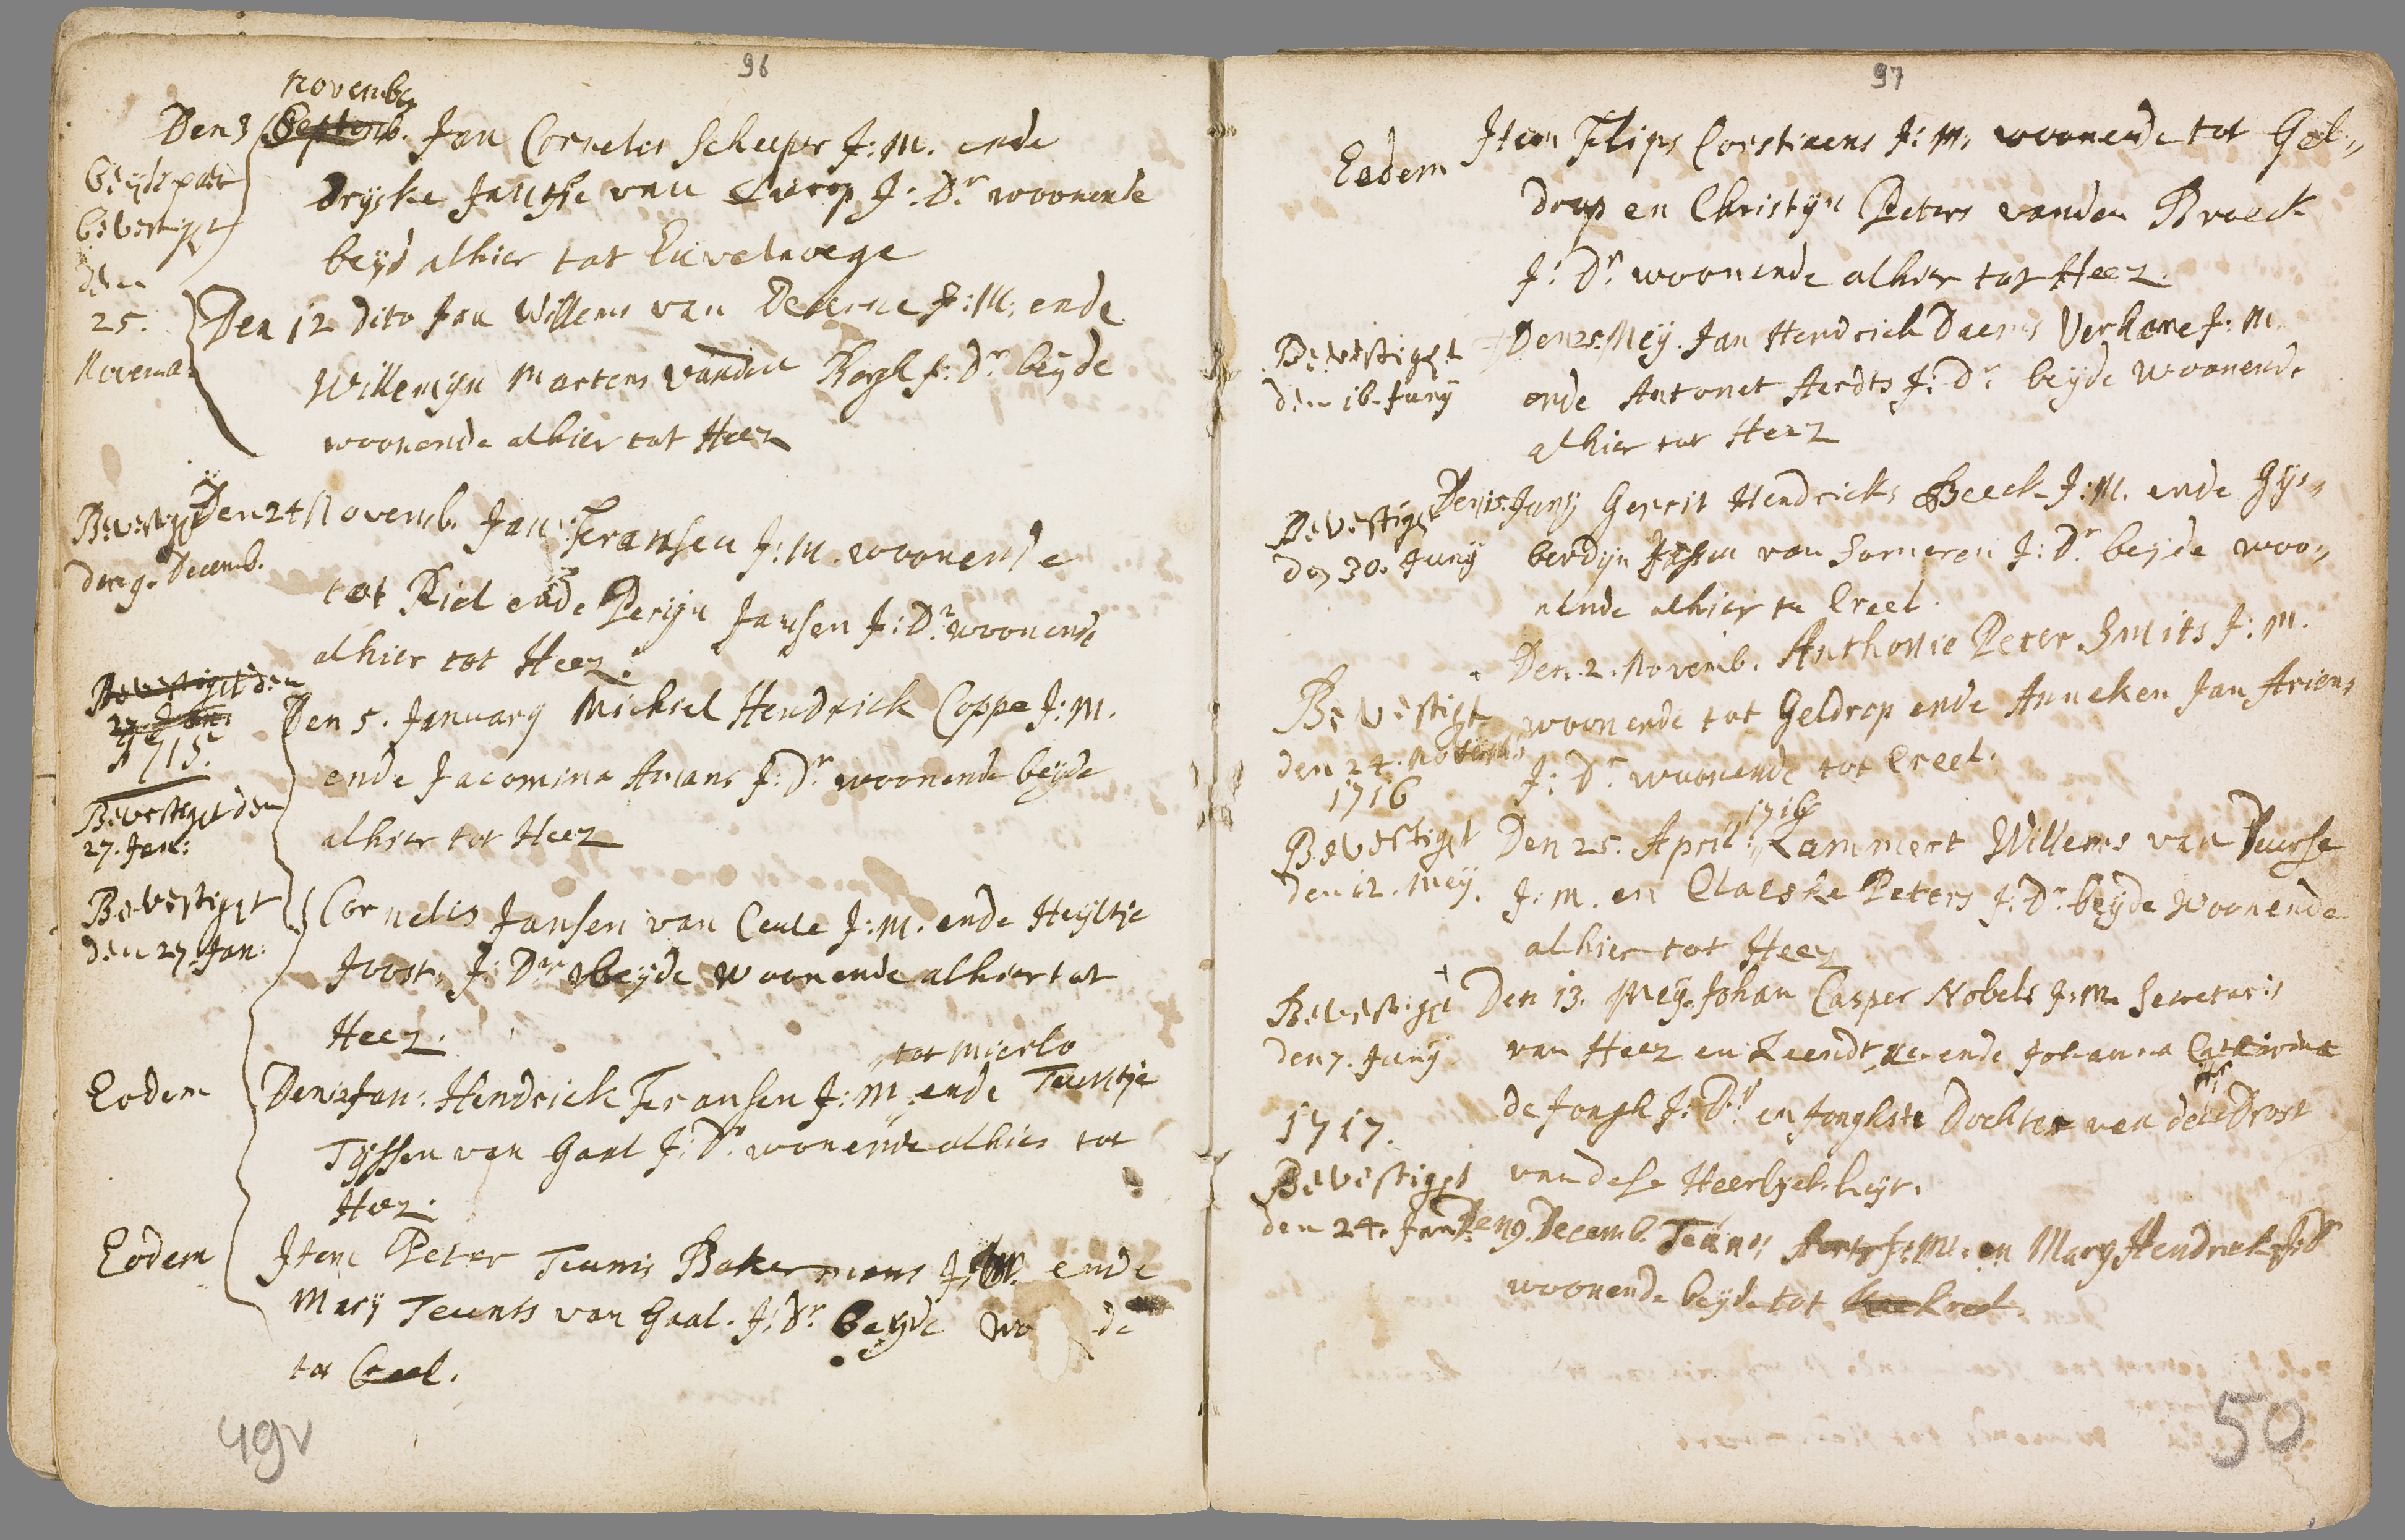 96
novemb.
Den 3 Septemb. Jan Cornelis Scheepers J:M. ende
Beyde paer
bevestigt
den
25.
Novemb.
Drijske Janssse van J:Dr. woonende
beyd alhier tot Euvelwege
Den 12 dito Jan Willems van Deurne J:M. ende
Willemijn Martens vanden Bergh J:Dr. beyde
woonende alhier tot Heez
Bevestigt
den 9. Decemb.
Den 24 Novemb. Jan Fransen J:M. woonende
tot Riel ende Perijn Jansen J:Dr. woonende
alhier tot Heez.
Bevestiget den
27 Jan:
1715.
Bevestiget den
27. Jan:
Den 5. January Michiel Hendrick Coppe J:M.
ende Jacomina Arians J:Dr. woonende beyde
alhier tot Heez
Bevestigt
den 27. Jan:
Cornelis Jansen van Ceule J:M. ende Heyltje
Joosts J:Dr. beyde woonende alhier tot
Heez.
tot Mierlo
Eodem
Den 12 Jan: Hendrick Fransen J:M. ende Teuntje
Tijssen van Gaal J:Dr. wonende alhier tot
Heez.
Eodem
Item Peter Teunis Bakermans J:M. ende
Marij Teunis van Gaal. J:Dr. beyde wo de
tot Creel.
49v
97
Eodem
Item Flips Corstiaens J:M. woonende tot Gel„
drop en Christijn Peters vanden Broeck
J:Dr. woonende alhier tot Heez.
Bevestiget
den 16. Juny
Den 25. Meij. Jan Hendrick Daems Verhove J:M.
ende Antonet Aerdts J:Dr. beyde woonende
alhier tot Heez
Bevestiget
den 30. Juny
Den 15. Juny Gerrit Hendricks Beeck J:M. ende Gijs„
berdijn Jansen van Someren J:Dr. beyde woo„
nende alhier te Creel.
Bevestigt
den 24. Novemb.
Den 2. Novemb. Anthonie Peter Smits J:M.
woonende tot Geldrop ende Anneken Jan Ariens
J:Dr. woonende tot Creel.
1716
Bevestiget
den 12. Meij.
1716
Den 25. April. Lammert Willems van Deurse
J:M. en Claeske Peters J:Dr. beyde woonende
alhier tot Heez
Bevestigt
den 7. Juny
Den 13. Meij. Johan Casper Nobels J:M. Secretaris
van Heez en Leende, ende Johanna Catharina
de Jongh J:Dr. en Jonghste Dochter van den Hr Drost
van dese Heerlyckheyt.
1717.
Bevestiget
den 24. Jan:
Den 19. Decemb. Teunis Aerts J:M. en Mary Hendricks J:Dr
woonende beyde tot Kreel.
50